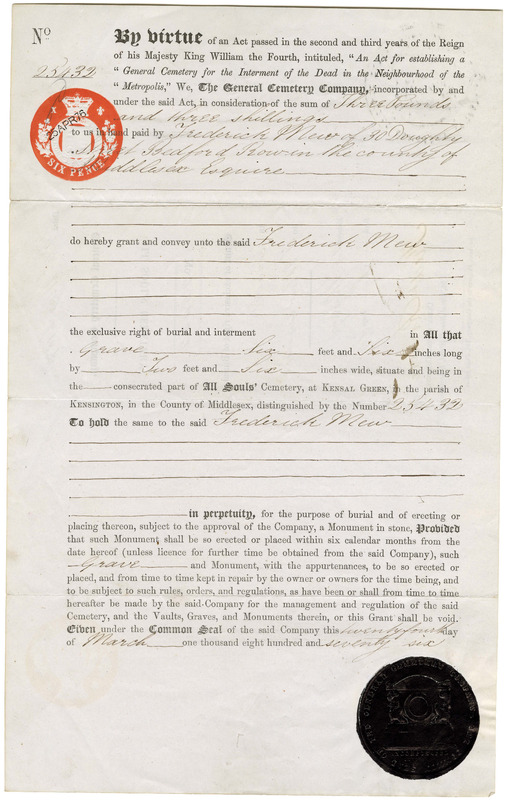 No
25432
By virtue of an Act passed in the second and third years of the Reign
of his Majesty King William the Fourth, intituled, "An Act for establishing a
"General Cemetery for the Interment of the Dead in the Neighbourhood of the
"Metropolis," We, The General Cemetery Company, incorporated by and
under the said Act, in consideration of the sum of Three Pounds
and three shillings
to us in hand paid by Frederick Mew of 30 Doughty
Street Bedford Row in the county of
Middlesex Esquire
25 APR 76
SIX PENCE
do hereby grant and convey unto the said Frederick Mew
the exclusive right of burial and interment in All that
Grave Six feet and Six inches long
by Two feet and Six inches wide, situate and being in
the consecrated part of All Souls' Cemetery, at KENSAL GREEN, in the parish of
KENSINGTON, in the County of Middlesex, distinguished by the Number 25432
To hold the same to the said Frederick Mew
in perpetuity, for the purpose of burial and of erecting or
placing thereon, subject to the approval of the Company, a Monument in stone, Provided
that such Monument shall be so erected or placed within six calendar months from the
date hereof (unless licence for further time be obtained from the said Company), such
Grave and Monument, with the appurtenances, to be so erected or
placed, and from time to time kept in repair by the owner or owners for the time being, and
to be subject to such rules, orders, and regulations, as have been or shall from time to time
hereafter be made by the said Company for the management and regulation of the said
Cemetery, and the Vaults, Graves, and Monuments therein, or this Grant shall be void.
Given under the Common Seal of the said Company this twenty fourth day
of March one thousand eight hundred and seventy six